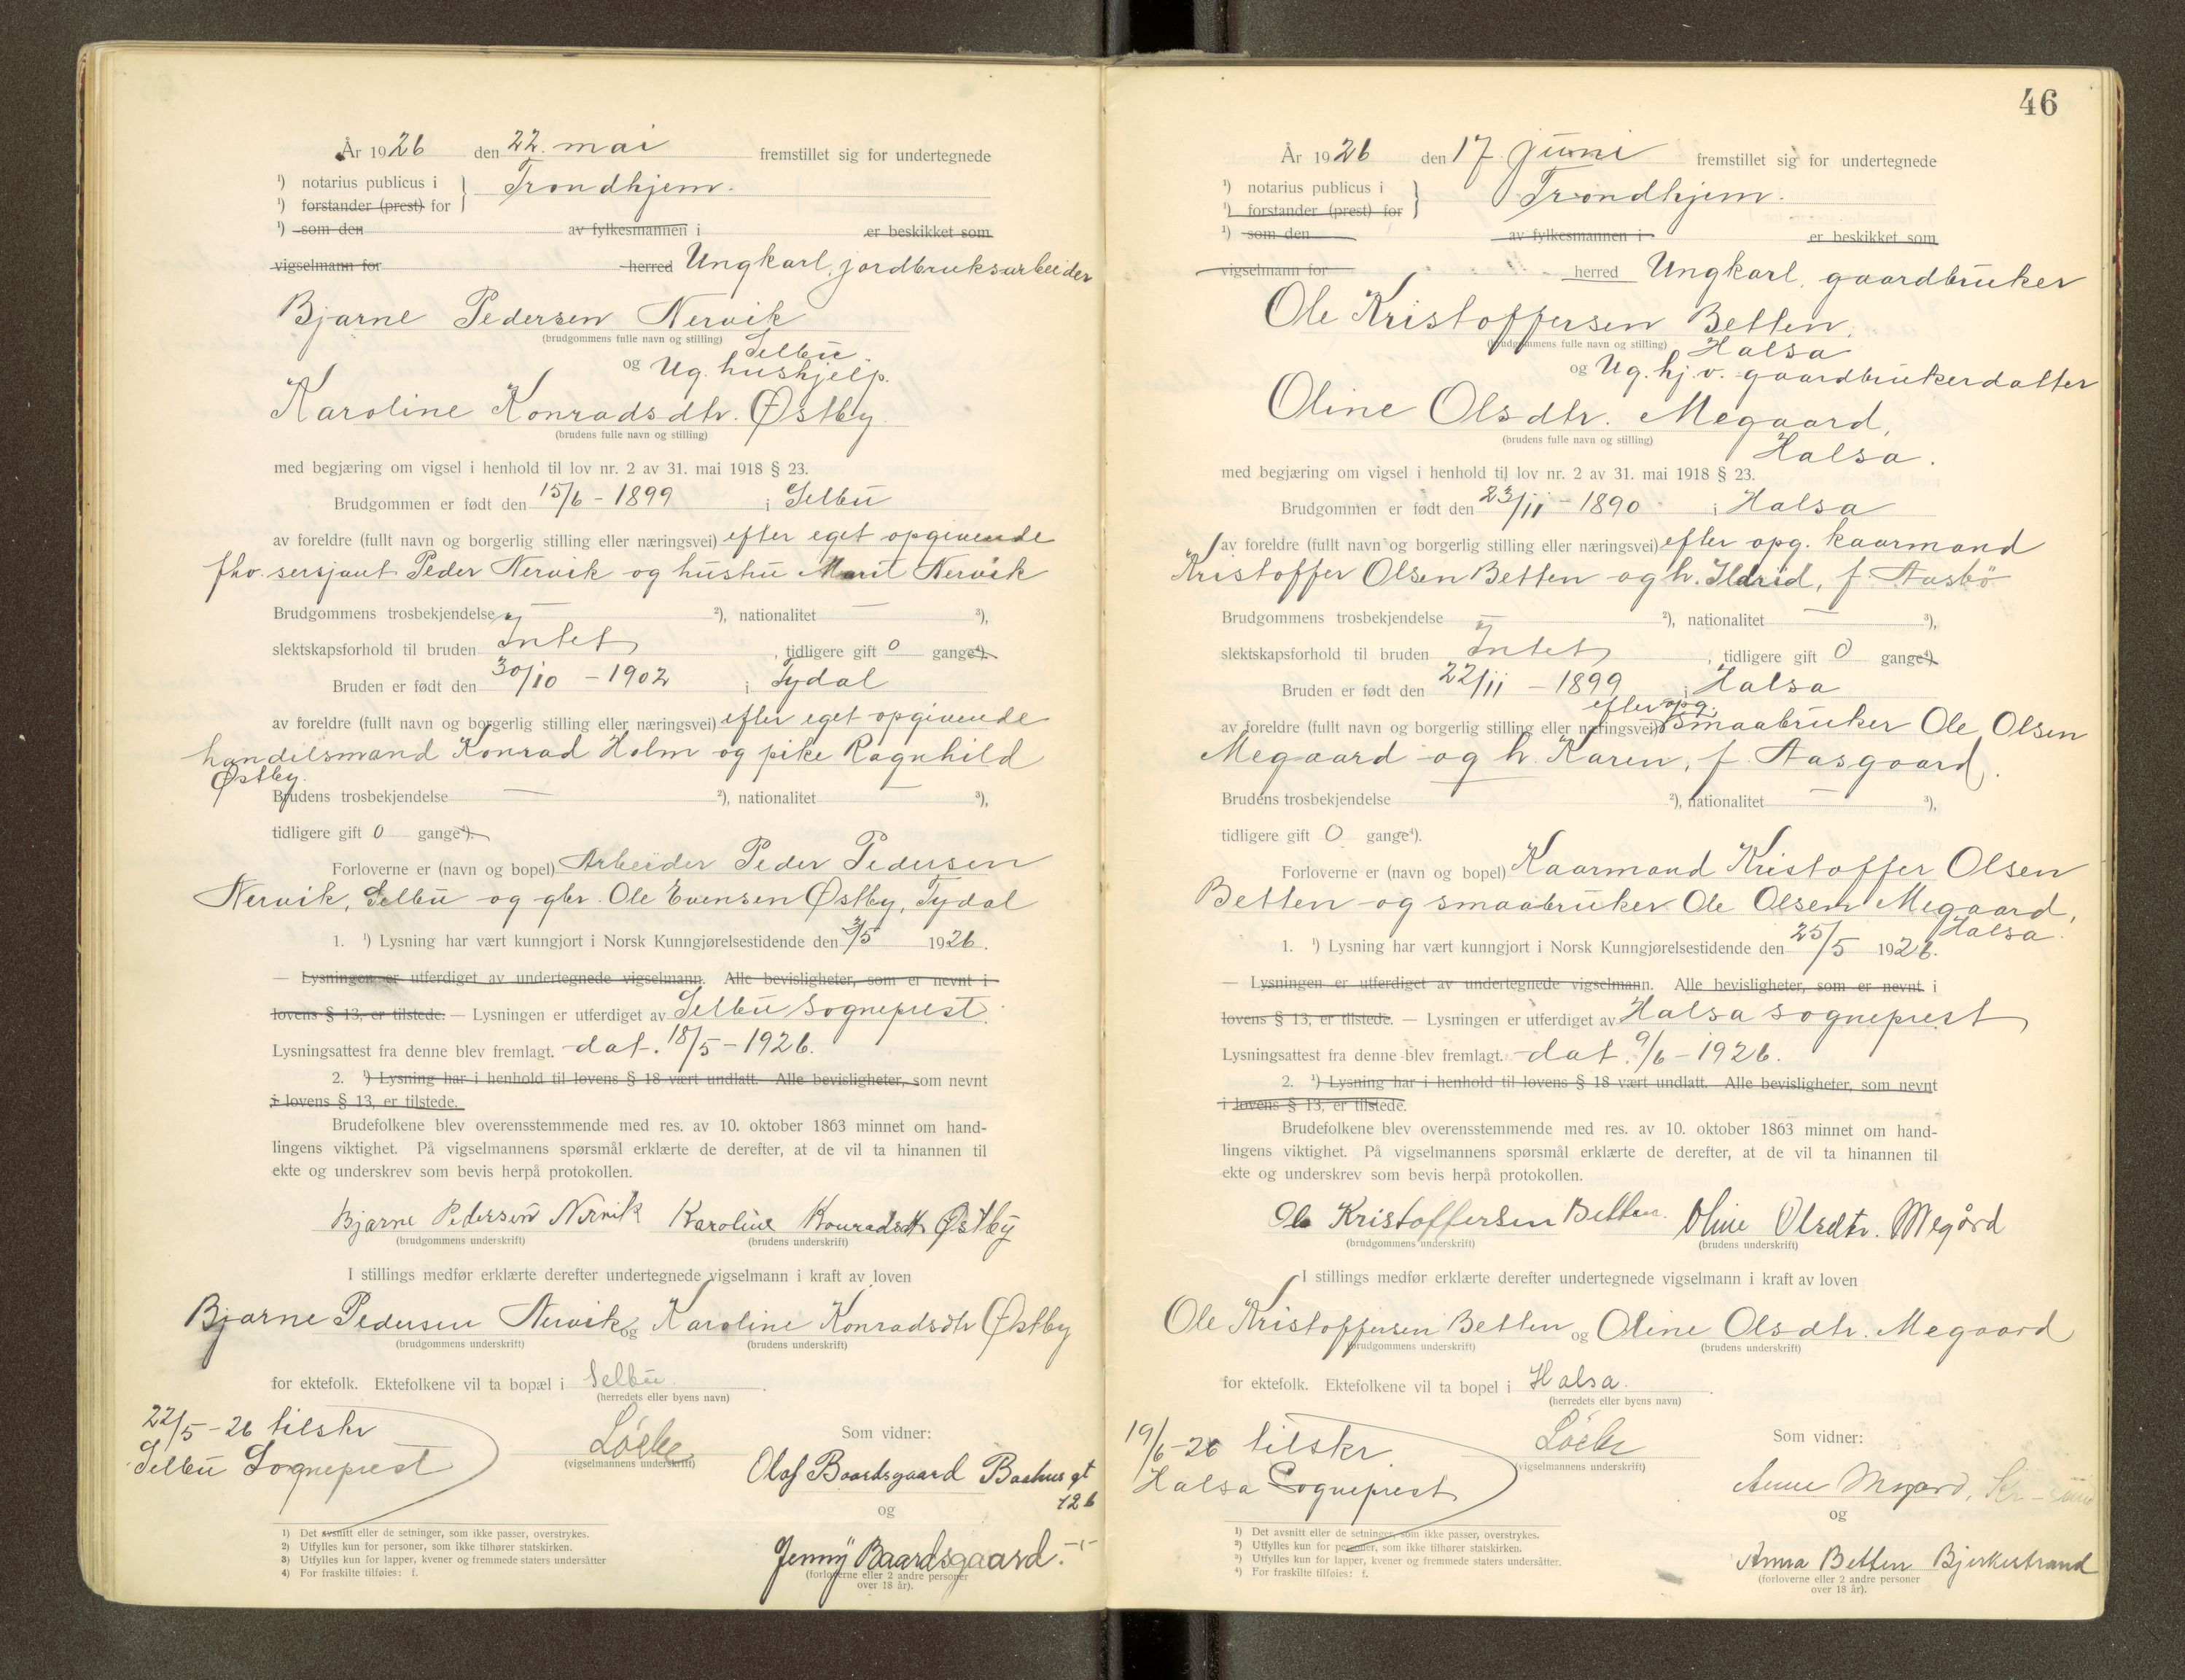 År 1926 den 22. mai fremstillet sig for undertegnede
¹) notarius publicus i } Trondhjem.
¹) forstander (prest) for
¹) som den av fylkesmannen i er beskikket som
vigselmann for herred Ungkarl, jordbruksarbeider
Bjarne Pedersen Nervik
(brudgommens fulle navn og stilling) Selbu.
og Ug. hushjelp.
Karoline Konradsdtr. Østby
(brudens fulle navn og stilling)
med begjæring om vigsel i henhold til lov nr. 2 av 31. mai 1918 § 23.
Brudgommen er født den 15/6 - 1899 i Selbu
av foreldre (fullt navn og borgerlig stilling eller næringsvei) efter eget opgivende
fhv. sersjant Peder Nervik og hustru Marit Nervik
Brudgommens trosbekjendelse — ²), nationalitet — ³),
slektskapsforhold til bruden Intet, tidligere gift 0 gange⁴).
Bruden er født den 30/10 - 1902 i Tydal
av foreldre (fullt navn og borgerlig stilling eller næringsvei) efter eget opgivende
handelsmand Konrad Holm og pike Ragnhild
Østby.
Brudens trosbekjendelse — ²), nationalitet ³),
tidligere gift 0 gange⁴).
Forloverne er (navn og bopel) Arbeider Peder Pedersen
Nervik, Selbu og gbr. Ole Evensen Østby, Tydal
1. ¹) Lysning har vært kunngjort i Norsk Kunngjørelsestidende den 3/5 1926.
— Lysningen er utferdiget av undertegnede vigselmann. Alle bevisligheter, som er nevnt i
lovens § 13, er tilstede. — Lysningen er utferdiget av Selbu sogneprest.
Lysningsattest fra denne blev fremlagt. dat. 18/5 - 1926.
2. ¹) Lysning har i henhold til lovens § 18 vært undlatt. Alle bevisligheter, som nevnt
i lovens § 13, er tilstede.
Brudefolkene blev overensstemmende med res. av 10. oktober 1863 minnet om hand-
lingens viktighet. På vigselmannens spørsmål erklærte de derefter, at de vil ta hinannen til
ekte og underskrev som bevis herpå protokollen.
Bjarne Pedersen Nervik Karoline Konradsdtr Østby
(brudgommens underskrift) (brudens underskrift)
I stillings medfør erklærte derefter undertegnede vigselmann i kraft av loven
Bjarne Pedersen Nervik og Karoline Konradsdtr Østby
(brudgommens underskrift) (brudens underskrift)
for ektefolk. Ektefolkene vil ta bopæl i Selbu.
(herredets eller byens navn)
22/5 - 26 tilskr
Selbu Sogneprest
(vigselmannens underskrift)
Som vidner:
Olaf Baardsgaard Bakhus gt
12 b
og
Jenny Baardsgaard. -"-
(forloverne eller 2 andre personer
over 18 år).
1) Det avsnitt eller de setninger, som ikke passer, overstrykes.
2) Utfylles kun for personer, som ikke tilhører statskirken.
3) Utfylles kun for lapper, kvener og fremmede staters undersåtter
4) For fraskilte tilføies: f.
46
År 1926 den 17 juni fremstillet sig for undertegnede
¹) notarius publicus i } Trondhjem.
¹) forstander (prest) for
¹) som den av fylkesmannen i er beskikket som
vigselmann for herred Ungkarl, gaardbruker
Ole Kristoffersen Betten,
(brudgommens fulle navn og stilling) Halsa
og Ug. hj.v. gaardbrukerdatter
Oline Olsdtr. Megaard,
(brudens fulle navn og stilling)
Halsa.
med begjæring om vigsel i henhold til lov nr. 2 av 31. mai 1918 § 23.
Brudgommen er født den 23/11 - 1890 i Halsa
av foreldre (fullt navn og borgerlig stilling eller næringsvei) efter opg. kaarmand
Kristoffer Olsen Betten og h. Ildrid, f. Aasbö
Brudgommens trosbekjendelse — ²), nationalitet — ³),
slektskapsforhold til bruden Intet, tidligere gift 0 gange⁴)
Bruden er født den 22/11 - 1899 i Halsa
efter opg.
av foreldre (fullt navn og borgerlig stilling eller næringsvei) Smaabruker Ole Olsen
Megaard og h. Karen, f. Aasgaard.
Brudens trosbekjendelse ²), nationalitet — ³),
tidligere gift 0 gange⁴).
Forloverne er (navn og bopel) Kaarmand Kristoffer Olsen
Betten og smaabruker Ole Olsen Megaard,
Halsa.
1. ¹) Lysning har vært kunngjort i Norsk Kunngjørelsestidende den 25/5 1926.
— Lysningen er utferdiget av undertegnede vigselmann. Alle bevisligheter, som er nevnt i
lovens § 13, er tilstede. — Lysningen er utferdiget av Halsa sogneprest
Lysningsattest fra denne blev fremlagt. dat. 9/6 - 1926.
2. ¹) Lysning har i henhold til lovens § 18 vært undlatt. Alle bevisligheter, som nevnt
i lovens § 13, er tilstede.
Brudefolkene blev overensstemmende med res. av 10. oktober 1863 minnet om hand-
lingens viktighet. På vigselmannens spørsmål erklærte de derefter, at de vil ta hinannen til
ekte og underskrev som bevis herpå protokollen.
Ole Kristoffersen Betten. Oline Olsdtr. Megård
(brudgommens underskrift) (brudens underskrift)
I stillings medfør erklærte derefter undertegnede vigselmann i kraft av loven
Ole Kristoffersen Betten og Oline Olsdtr. Megaard
(brudgommens underskrift) (brudens underskrift)
for ektefolk. Ektefolkene vil ta bopel i Halsa.
(herredets eller byens navn)
19/6 - 26 tilskr.
Halsa Sogneprest
(vigselmannens underskrift)
Som vidner:
Anne Megard, Kr-sund
og
Anna Betten Bjerkestrand
(forloverne eller 2 andre personer
over 18 år).
1) Det avsnitt eller de setninger, som ikke passer, overstrykes.
2) Utfylles kun for personer, som ikke tilhører statskirken.
3) Utfylles kun for lapper, kvener og fremmede staters undersåtter.
4) For fraskilte tilføies: f.